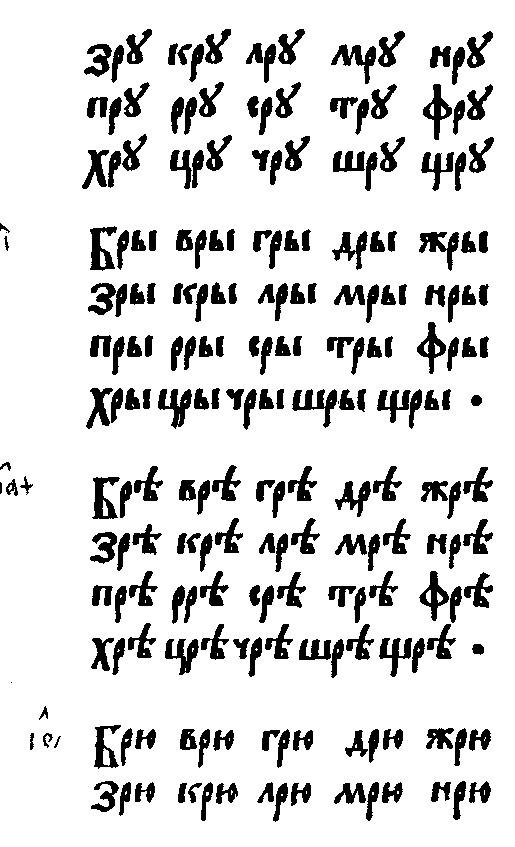 зрꙋ крꙋ лрꙋ мрꙋ нрꙋ
прꙋ ррꙋ срꙋ трꙋ фрꙋ
хрꙋ црꙋ чрꙋ шрꙋ щрꙋ
Бры вры гры дры жры
Зры кры лры мры нры
пры рры сры тры фры
хры цры чры шры щры •
Брѣ врѣ грѣ дрѣ жрѣ
Зрѣ крѣ лрѣ мрѣ нрѣ
прѣ ррѣ срѣ трѣ фрѣ
хрѣ црѣ чрѣ шрѣ щрѣ •
Брю врю грю дрю жрю
Зрю крю лрю мрю нрю